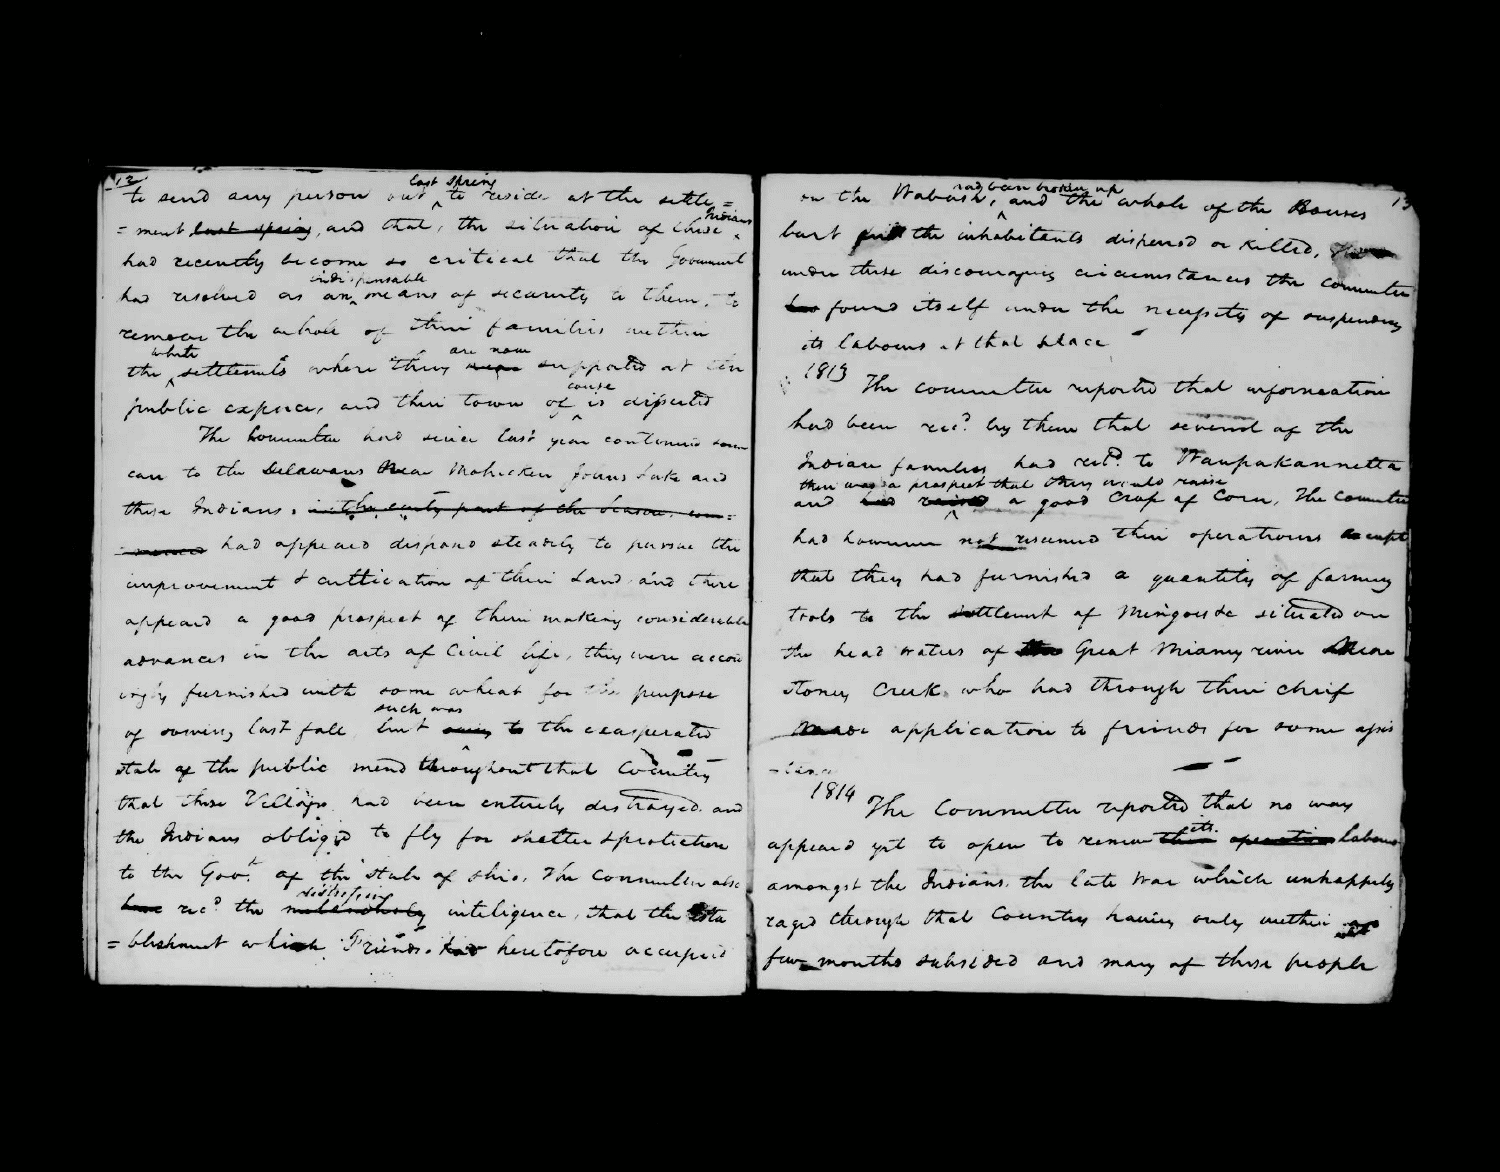 12
to send any person out last Spring to reside at the settle=
=ment last spring, and that, the situation of these Indians
had recently become so critical that the Goverment
had resolved as an indispensable means of security to them, to
remove the whole of their families within
the white settlements where they were are now supported at the
public expence, and their town of course is deserted
The Committee had since last year continued some
care to the Delawares near Mohicken Johns Lake and
these Indians, in the early part of the Season,
had appeared disposed steadily to pursue the
improvement & cultication of their Land and there
appeared a good prospect of their making considerable
advances in the arts of Civil life, they were accord
ingly furnished with some wheat for the purpose
of sowing last fall, but such was the exasperated
state of the public mind throughout that Country
that those Villages had been entirely destroyed and
the Indians obliged to fly for shelter & protection
to the Govt. of the State of Ohio. The Committee also
have recd. the melancholy distressing inteligence, that the esta
=blishment which Friends had heretofore occupied
13
on the Wabash, had been broken up and the whole of the Houses
burt and the inhabitants dispersed or killed,
under these discouraging circumstances the committee
has found itself under the necessity of suspending
its labours at that place
1813
The committee reported that information
had been recd. by them that several of the
Indian families had retd. to Waupakannetta
and had raised there was a prospect that they would raise a good Crop of Corn, The Committee
had however not resumed their operations except
that they had furnished a quantity of farming
tools to the settlement of Mingoes &c situated on
the head waters of the Great Miamy river near
stoney Creek who had through their chief
made application to friends for some assis
=tance
1814
The Committee reported that no way
appeared yet to open to renew their its operations labours
amongst the Indians, the late War which unhappily
raged through that Country having only within a
few months subsided and many of those people